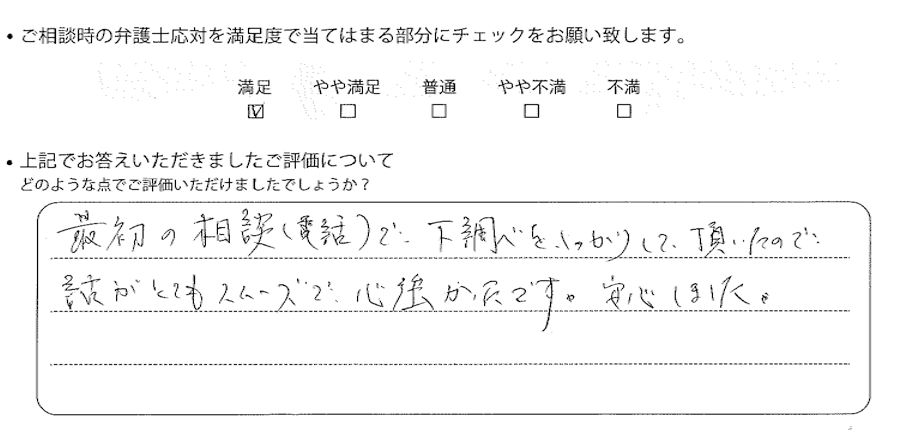 • ご相談時の弁護士応対を満足度で当てはまる部分にチェックをお願い致します。
満足 やや満足 普通 やや不満 不満
☑ ☐ ☐ ☐ ☐
• 上記でお答えいただきましたご評価について
どのような点でご評価いただけましたでしょうか？
最初の相談(電話)で、下調べをしっかりして、頂いたので、
話がとてもスムーズで、心強かったです。安心しました。